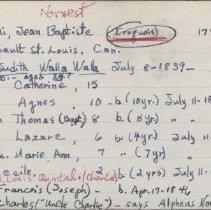 Norwest
i, Jean Baptiste (Iroquois) 17
ault St. Louis, Can.
Judith Walla Walla July 8-1839
Catherine, 15
Agnes 10 - b. (10 yr.) July 11-1
Thomas (Bapt) 8 b (8 yr)
Lazare, 6 b. (4 yr.) July 11-
Marie Ann, 7 (7 yr)
ecile. 2 b. (2 yrs) July 11-
Quintal
Francois (Joseph) - b. Apr. 17-184
Charles ("Uncle Charlie") - says Alpheus No